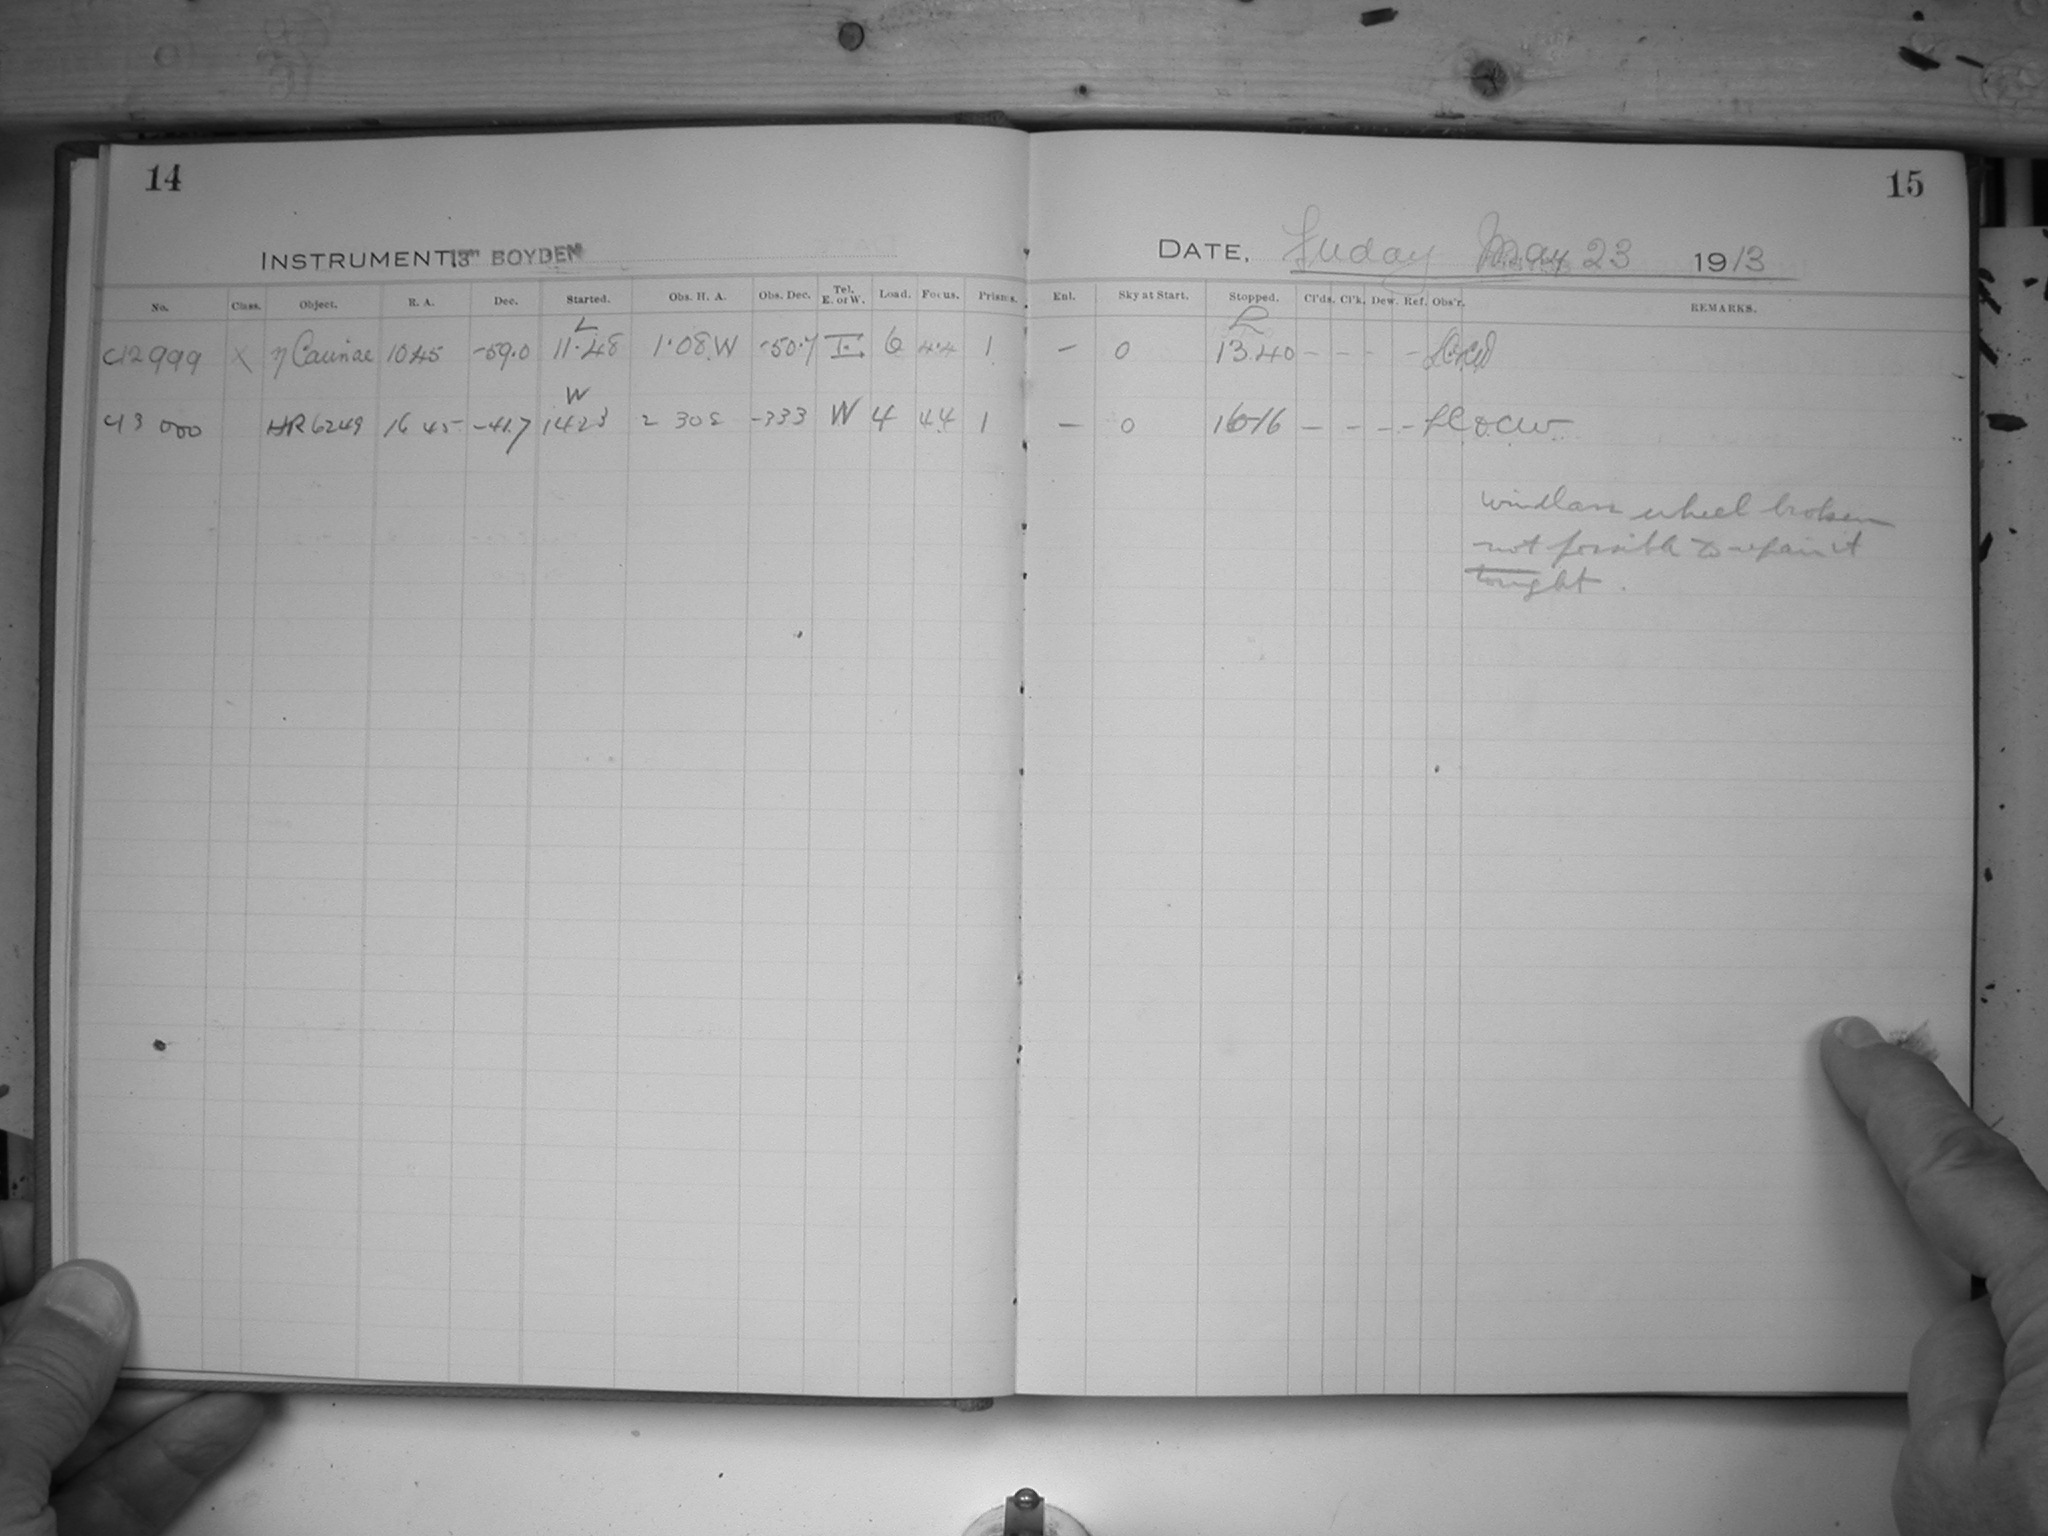 14
15
INSTRUMENT. 13" BOYDEN
DATE, Friday May 23 1913
No. Class. Object. R. A. Dec. Started. Obs. H. A. Obs. Dec. Tel. E. or W. Load. Focus. Prisms. Enl. Sky at Start. Stopped. Cl'ds. Cl'k. Dew. Ref. Obs'r. REMARKS.
L L
C12999 X η Carinae 1045 -59.0 11.48 1.08.W -50.7 E. 6 4.4 1 - 0 13.40 - - - -
W
C13 000 HR6249 16 45 -41.7 1423 2 30E -333 W 4 44 1 - 0 1616 - - - -
windlass wheel broken
not possible to repair it
tonight.